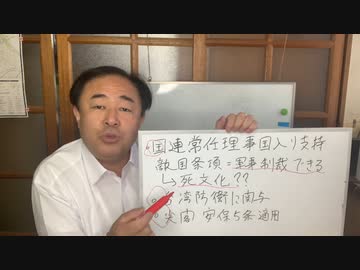 国連常任理事国入り支持
敵国条項=軍事制裁できる
↳死文化??
湾防衛に関与
尖閣 安保5条適用